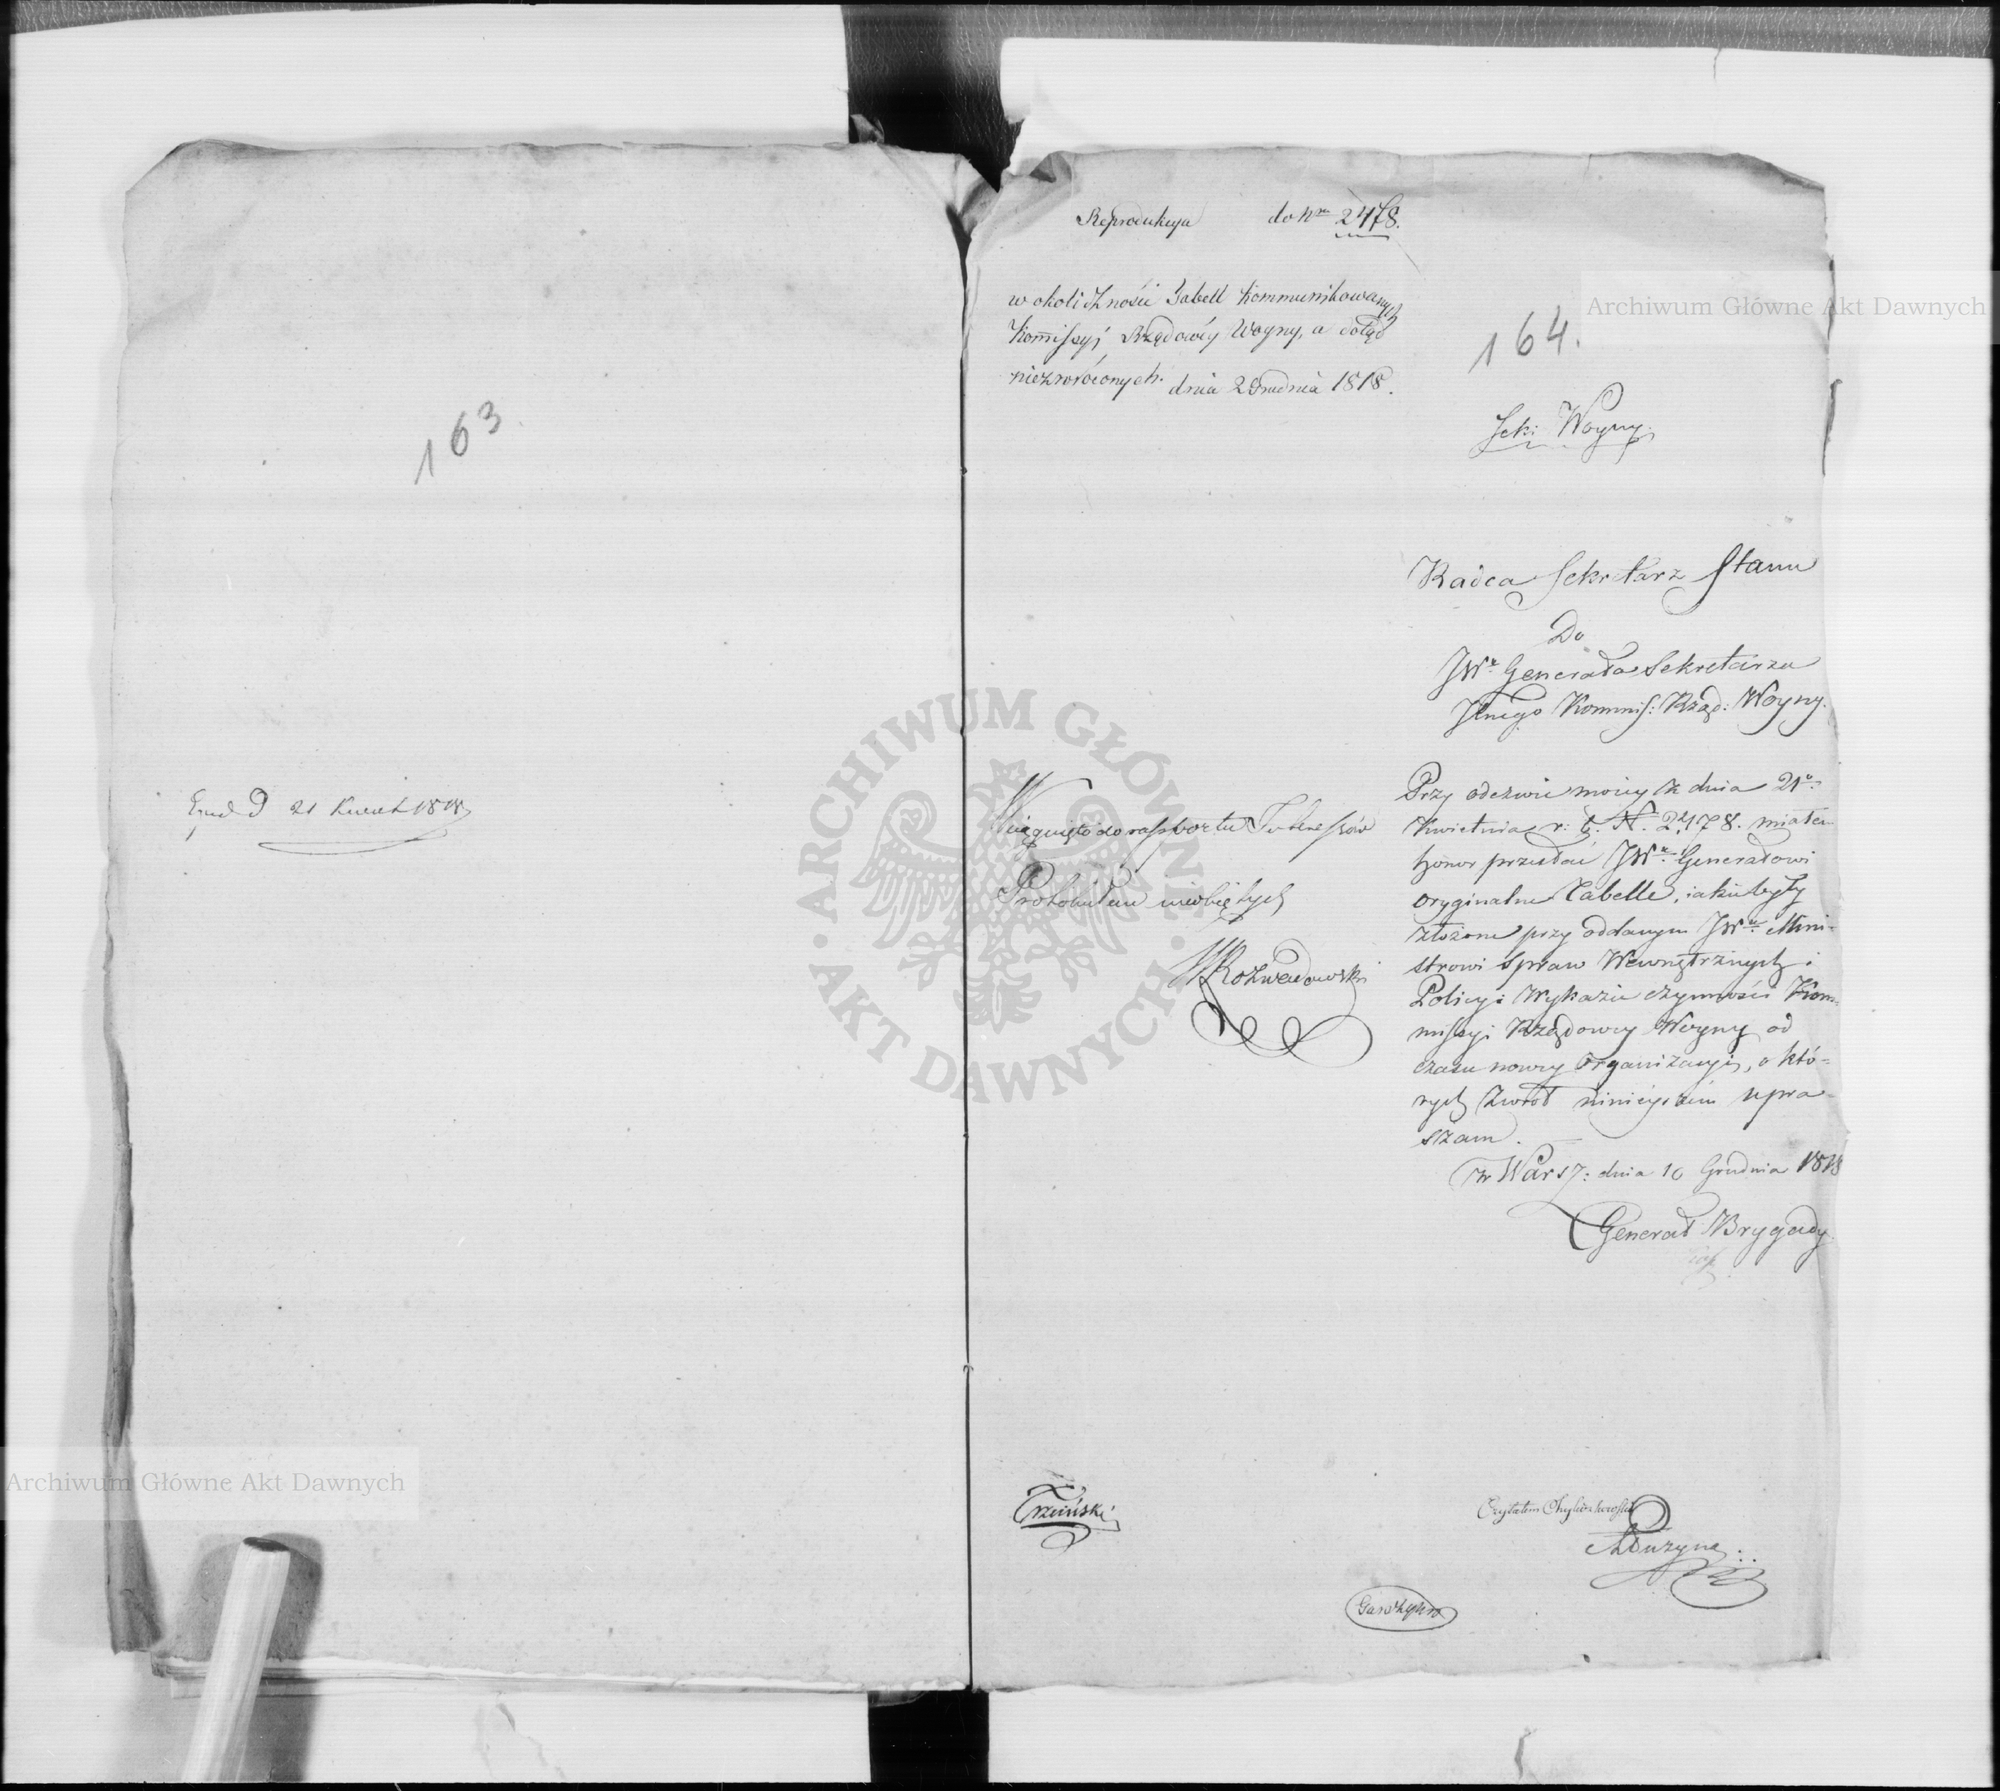 163
Exped D 21 Kwiet 1818
Archiwum Główne Akt Dawnych
Reprodukcya do Nru 2478.
w okoliczności Tabell kommunikowanych
Kommissyi Rządowéy Woyny, a dotąd
niezwróconych. dnia 2 Grudnia 1818.
Archiwum Główne Akt Dawnych
164.
Sek: Woyny.
Radca Sekretarz Stanu
Do
JWo Generała Sekretarza
Jlnego Kommis: Rząd: Woyny.
Przy odezwie moiéy z dnia 21o
Kwietnia r: b. N. 2478. miałem
honor przesłać JWu Generałowi
oryginalne Tabelle, iakie były
złożone przy oddanym JWu Mini=
strowi Spraw Wewnętrznych i
Policyi Wykazie czynności Kom=
missyi Rządowey Woyny od
czasu nowey Organizacyi, o któ=
rych zwrot ninieyszem upra=
szam.
w Warsz: dnia 10 Grudnia 1818
Generał Brygady
Wciągnięto do rapportu
Protokułem
Rozwadowski
ARCHIWUM GŁÓWNE
AKT DAWNYCH
Trzciński
Czytałem